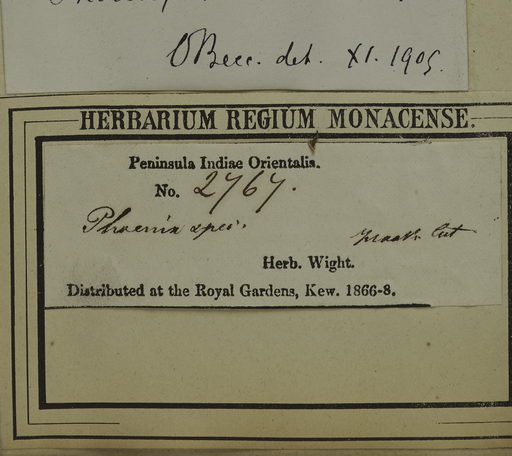 O Becc. det. XI. 1905.
HERBARIUM REGIUM MONACENSE.
Peninsula Indiae Orientalis.
No. 2767.
Phoenix spec.
Herb. Wight.
Distributed at the Royal Gardens, Kew. 1866-8.